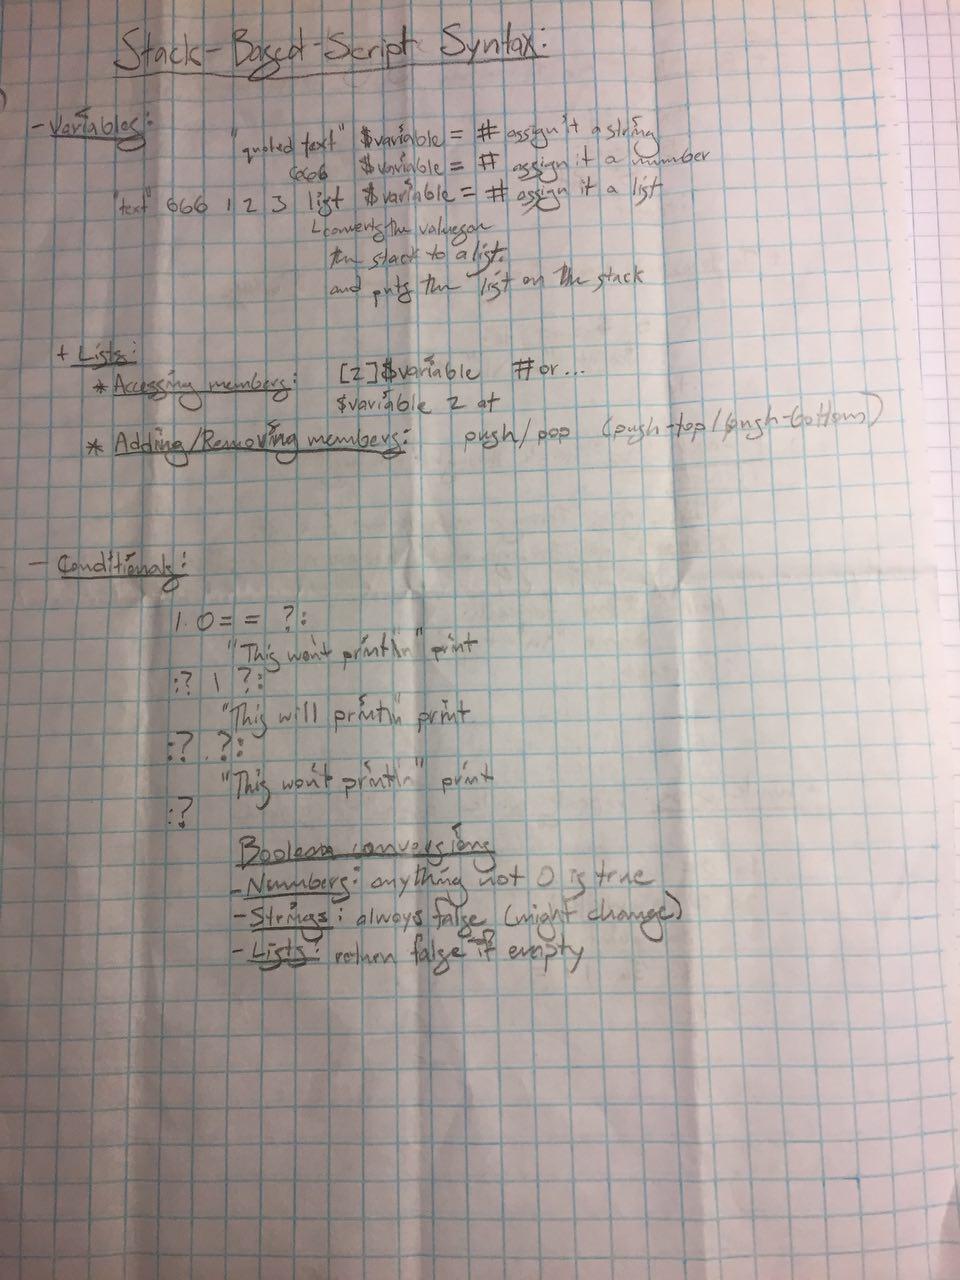 Stack-Based-Script Syntax:
- Variables:
"quoted text" $variable = # assign't a string
666 $variable = # assign it a number
"text" 666 1 2 3 list $variable = # assign it a list
converts the values on
the stack to a list.
and puts the list on the stack
+ Lists:
* Accessing members: [2]$variable # or...
$variable 2 at
* Adding/Removing members: push/pop (push-top/push-bottom)
- Conditionals:
1 0 = = ?:
"This won't print\n" print
:? 1 ?:
"This will print\n" print
:? ?:
"This won't print\n" print
:?
Boolean conversions
- Numbers: anything not 0 is true
- Strings: always false (might change)
- Lists: return false if empty